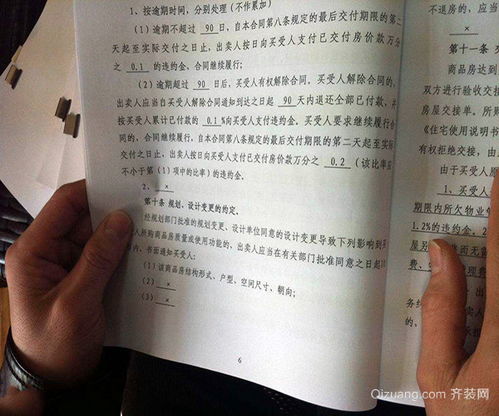 1、按逾期时间，分别处理（不作累加）
（1）逾期不超过 90 日，自本合同第八条规定的最后交付期限的第二
天起至实际交付之日止，出卖人按日向买受人支付已交付房价款万分
之 0.1 的违约金，合同继续履行；
（2）逾期超过 90 日后，买受人有权解除合同。买受人解除合同的，
出卖人应当自买受人解除合同通知到达之日起 90 天内退还全部已付款，并
按买受人累计已付款的 0.1 %向买受人支付违约金。买受人要求继续履行合
同的，合同继续履行，自本合同第八条规定的最后交付期限的第二天起至实际
交付之日止，出卖人按日向买受人支付已交付房价款万分之 0.2 （该比率应
不小于第（1）项中的比率）的违约金.
2、 ×
第十条 规划、设计变更的约定.
经规划部门批准的规划变更、设计单位同意的设计变更导致下列影响到买
人所购商品房质量或使用功能的，出卖人应当在有关部门批准同意之日起10
日内，书面通知买受人：
（1）该商品房结构形式、户型、空间尺寸、朝向；
（2） ×
（3） ×
6
不退房的，应当
第十一条
商品房达到
双方进行验收交接
房屋交接单。所购
《住宅使用说明书
有权拒绝交接，由
由于买受人原
1、买受人
期限内所欠物业
1.2%的违约金。2
屋另
费、
务纟
的。
承
Qizuang.com 齐装网